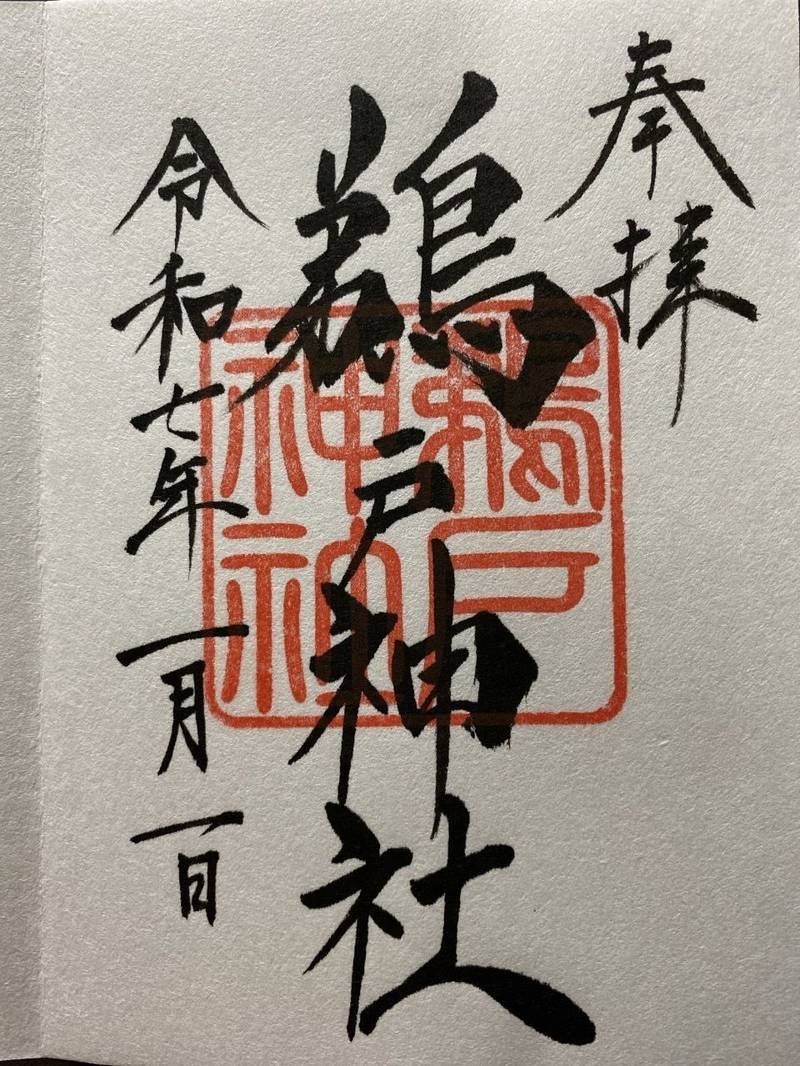 奉拝
鵜戸神社
令和七年一月一日
鵜戸
神社